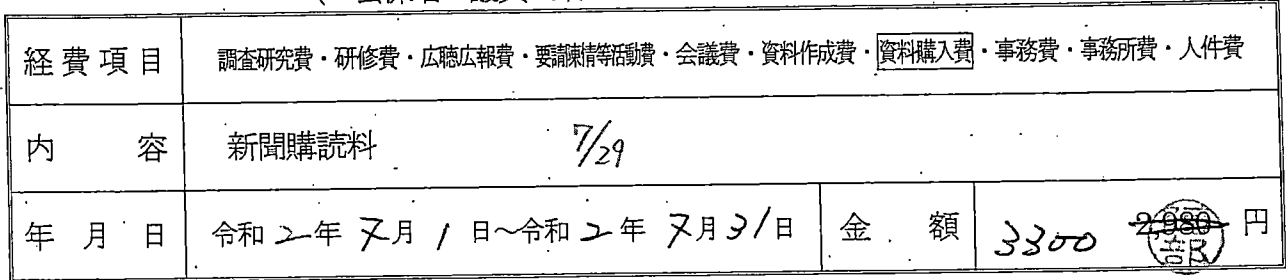 経費項目 調査研究費・研修費・広聴広報費・要請陳情等活動費・会議費・資料作成費・資料購入費・事務費・事務所費・人件費
内 容 新聞購読料 7/29
年月日 令和2年7月1日～令和2年7月31日 金額 3300 2,980 円